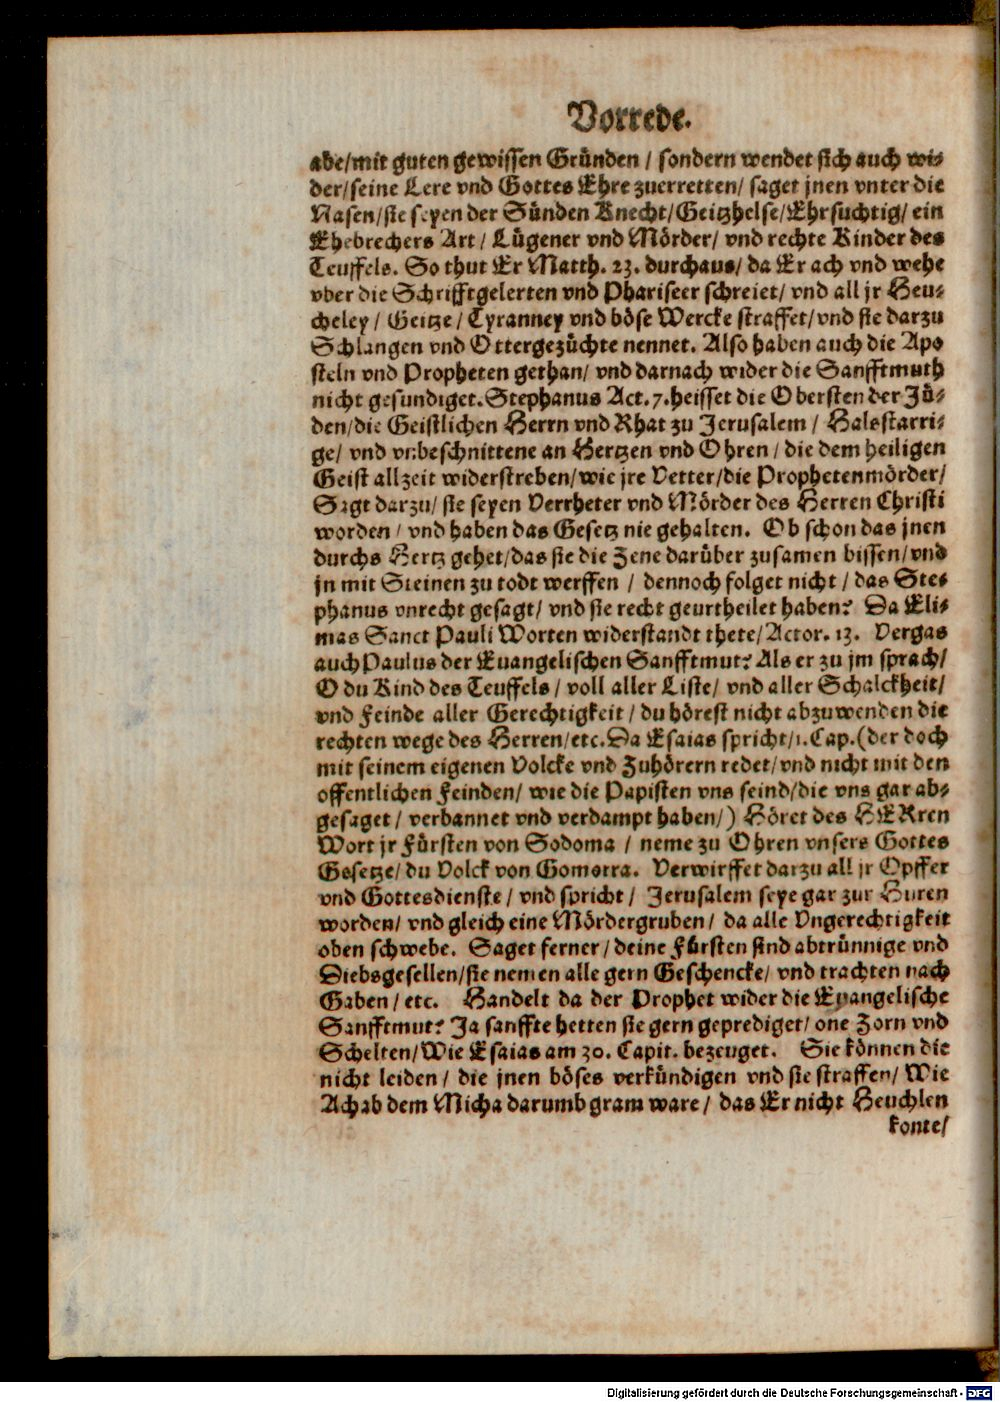 Vorrede.
abe/mit guten gewissen Gründen / sondern wendet sich auch wi⸗
der/seine Lere vnd Gottes Ehre zuerretten/ saget jnen vnter die
Nasen/sie seyen der Sünden Knecht/Geitzhelse/Ehrsuchtig/ ein
Ehebrechers Art / Lügener vnd Mörder/ vnd rechte Kinder des
Teuffels. So thut Er Matth. 23. durchaus/ da Er ach vnd wehe
vber die Schrifftgelerten vnd Phariseer schreiet/ vnd all jr Heu⸗
cheley / Geitze / Tyranney vnd böse Wercke straffet/vnd sie darzu
Schlangen vnd Ottergezüchte nennet. Also haben auch die Apo
steln vnd Propheten gethan/ vnd darnach wider die Sanfftmuth
nicht gesündiget. Stephanus Act. 7. heisset die Obersten der Jü⸗
den/die Geistlichen Herrn vnd Rhat zu Jerusalem / Halsstarri⸗
ge/ vnd vnbeschnittene an Hertzen vnd Ohren / die dem heiligen
Geist allzeit widerstreben/wie jre Vetter/die Prophetenmörder/
Sagt darzu/ sie seyen Verrheter vnd Mörder des Herren Christi
worden / vnd haben das Gesetz nie gehalten. Ob schon das jnen
durchs Hertz gehet/das sie die Zene darüber zusamen bissen/vnd
jn mit Steinen zu todt werffen / dennoch folget nicht / das Ste⸗
phanus vnrecht gesagt/ vnd sie recht geurtheilet haben? Da Eli⸗
mas Sanct Pauli Worten widerstandt thete/Actor. 13. Vergas
auch Paulus der Euangelischen Sanfftmut? Als er zu jm sprach/
O du Kind des Teuffels / voll aller Liste/ vnd aller Schalckheit/
vnd Feinde aller Gerechtigkeit / du hörest nicht abzuwenden die
rechten wege des Herren/etc. Da Esaias spricht/1. Cap. (der doch
mit seinem eigenen Volcke vnd Zuhörern redet/vnd nicht mit den
offentlichen Feinden/ wie die Papisten vns seind/die vns gar ab⸗
gesaget / verbannet vnd verdampt haben/) Höret des HERren
Wort jr Fürsten von Sodoma / neme zu Ohren vnsers Gottes
Gesetze/ du Volck von Gomorra. Verwirffet darzu all jr Opffer
vnd Gottesdienste / vnd spricht / Jerusalem seye gar zur Huren
worden/ vnd gleich eine Mördergruben/ da alle Vngerechtigkeit
oben schwebe. Saget ferner / deine Fürsten sind abtrünnige vnd
Diebsgesellen/sie nemen alle gern Geschencke/ vnd trachten nach
Gaben / etc. Handelt da der Prophet wider die Euangelische
Sanfftmut? Ja sanffte hetten sie gern geprediget/ one Zorn vnd
Schelten/Wie Esaias am 30. Capit. bezeuget. Sie können die
nicht leiden / die jnen böses verkündigen vnd sie straffen/ Wie
Achab dem Micha darumb gram ware / das Er nicht Heuchlen
konte/
Digitalisierung gefördert durch die Deutsche Forschungsgemeinschaft - DFG